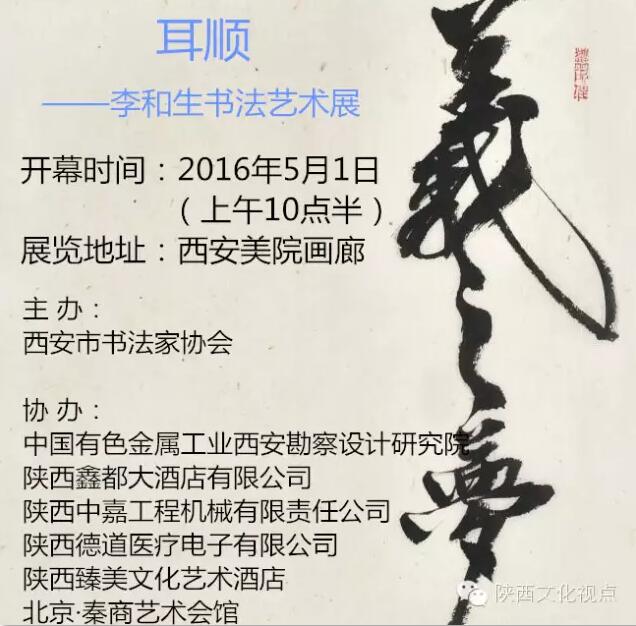 耳顺
——李和生书法艺术展
开幕时间：2016年5月1日
（上午10点半）
展览地址：西安美院画廊
主 办：
西安市书法家协会
协 办：
中国有色金属工业西安勘察设计研究院
陕西鑫都大酒店有限公司
陕西中嘉工程机械有限责任公司
陕西德道医疗电子有限公司
陕西臻美文化艺术酒店
北京·秦商艺术会馆
羲之梦
陕西文化视点